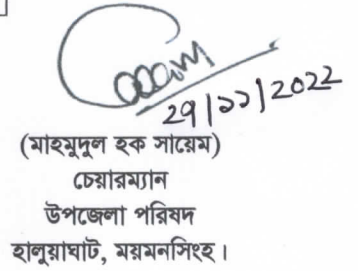 29/১১/2022
(মাহমুদুল হক সায়েম)
চেয়ারম্যান
উপজেলা পরিষদ
হালুয়াঘাট, ময়মনসিংহ।